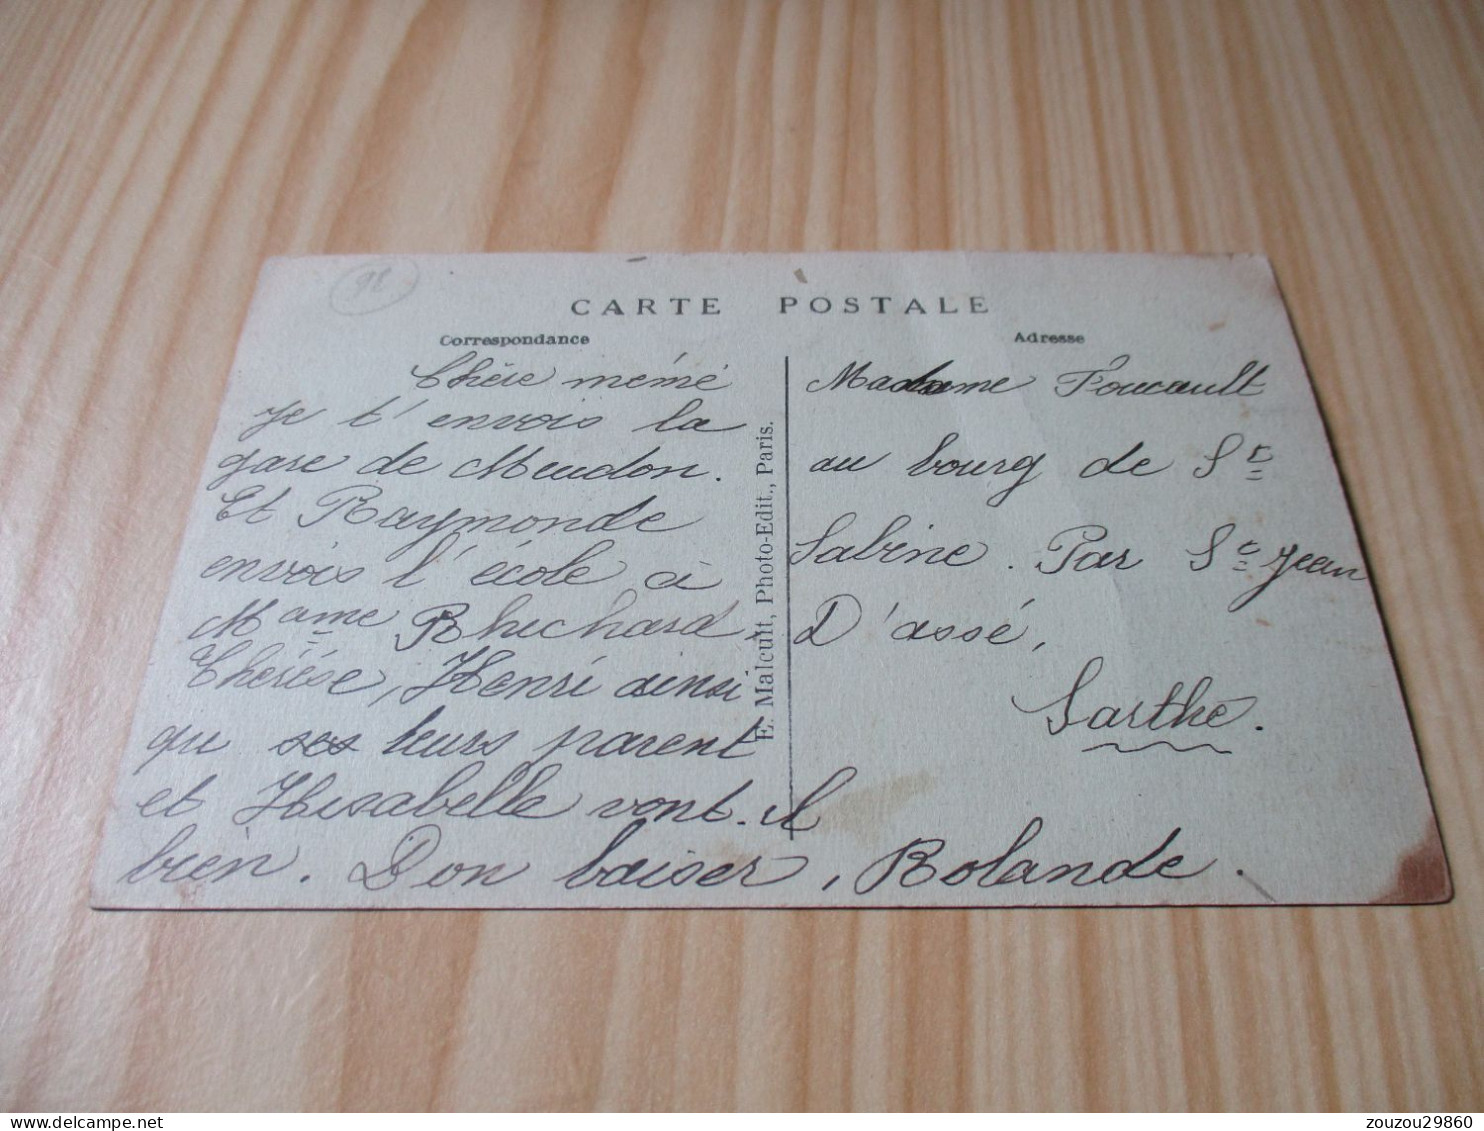 92
CARTE POSTALE
Correspondance
Chère mémé
je t'envois la
gare de Meudon.
Et Raymonde
envois l'école à
Mame Rhichard,
Thérèse, Henri ainsi
qu ses leurs parent
et Hisabelle vont-il
bien. Don baiser, Rolande.
E. Malcuit, Photo-Edit., Paris.
Adresse
Madame Foucault
au bourg de St
Sabine. Par St Jean
D'assé,
Sarthe.
zouzou29860